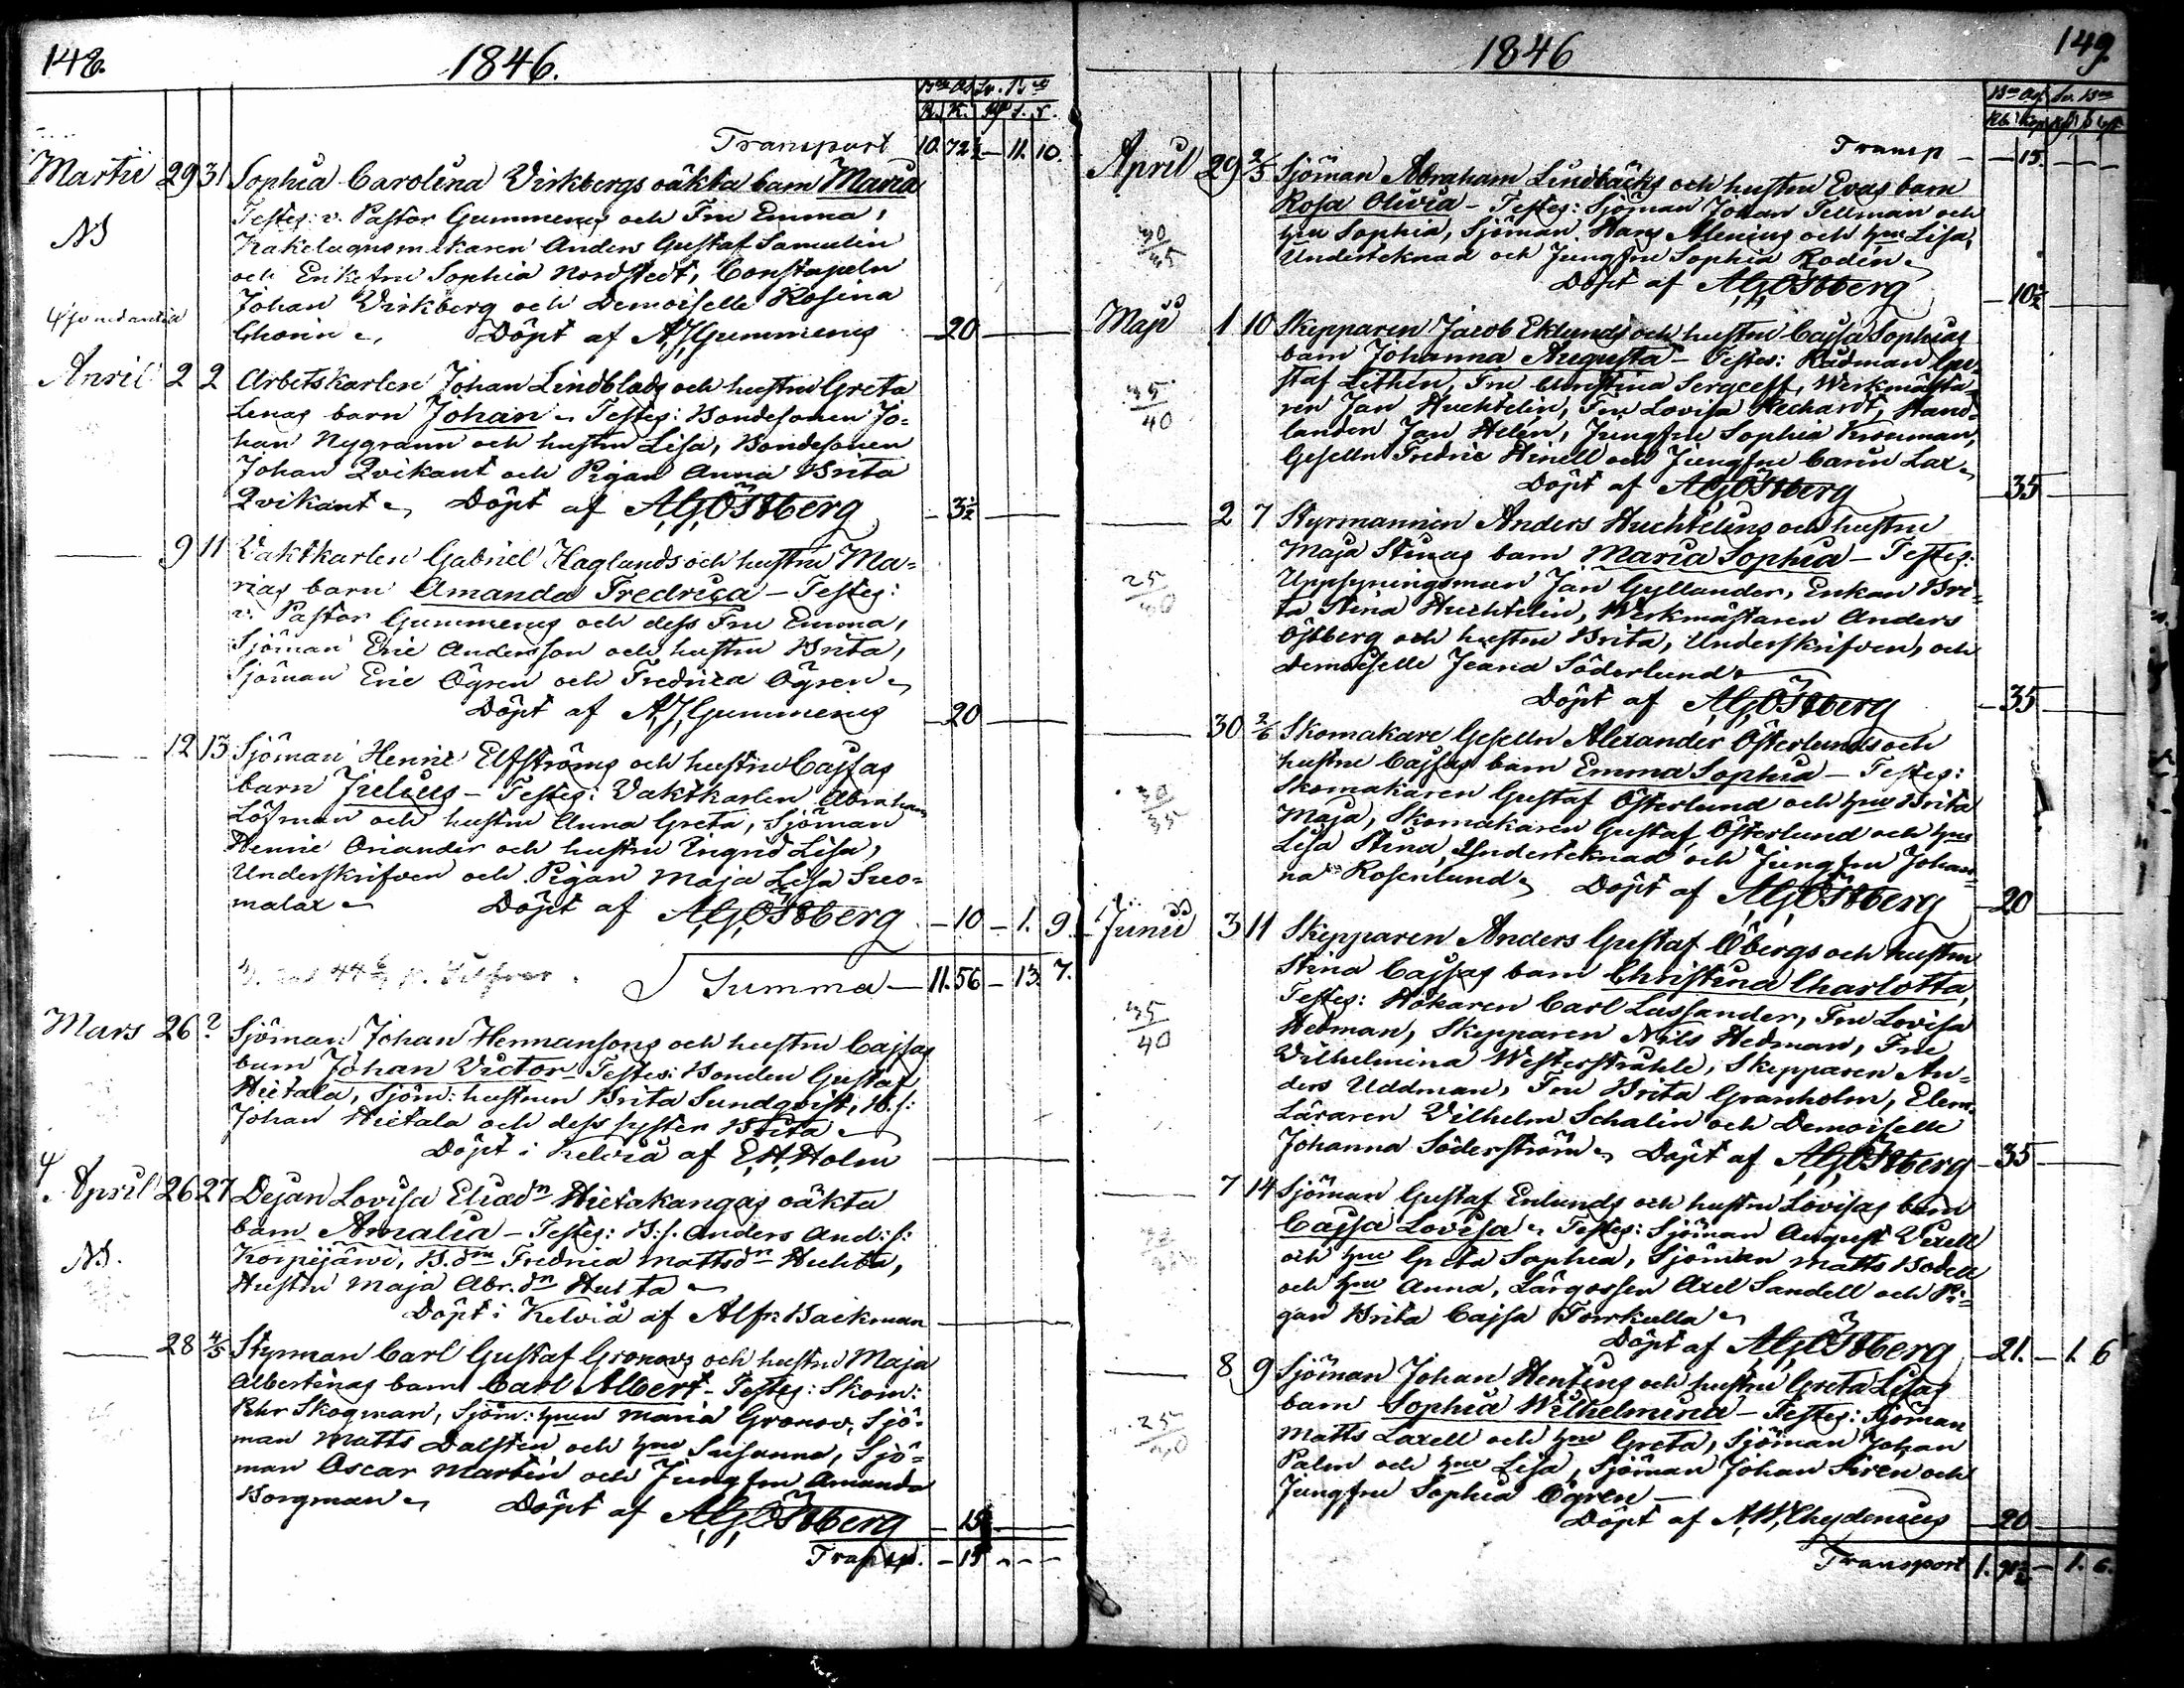 148.
1846.
Bco Ass. Sv. Bco
R. K. Rd s. r.
Transport 10. 72½ – 11. 10.
Martii 29 31 Sophia Carolina Virkbergs oäkta barn Maria
Testes: v. Pastor Gummerus och Fru Emma,
NB Kakelugnsmakaren Anders Gustaf Samulin
och Enkefru Sophia Nordstedt, Constapeln
Johan Virkberg och Demoiselle Rosina
Chorin Döpt af A.J. Gummerus – 20 –
April 2 2 Arbetskarlen Johan Lindblads och hustru Greta
Lenas barn Johan – Testes: Bondesonen Jo=
han Nygrann och hustru Lisa, Bondesonen
Johan Qvikant och Pigan Anna Brita
Qvikant Döpt af A.G. Östberg – 3½ –
– 9 11 Vaktkarlen Gabriel Haglunds och hustru Ma=
rias barn Amanda Fredrica – Testes:
v. Pastor Gummerus och dess Fru Emma,
Sjöman Eric Andersson och hustru Brita,
Sjöman Eric Ögren och Fredrica Ögren
Döpt af A.J. Gummerus – 20 –
– 12 13 Sjöman Henric Elfströms och hustru Cajsas
barn Julius – Testes: Vaktkarlen Abraham
Löfman och hustru Anna Greta, Sjöman
Henric Oriander och hustru Ingrid Lisa,
Underskrifven och Pigan Maja Lisa Suo=
malax Döpt af A.G. Östberg – 10 – 1. 9.
Summa – 11. 56 – 13. 7.
Mars 26 ? Sjöman Johan Hermansons och hustru Cajsas
barn Johan Victor – Testes: Bonden Gustaf
Hietala, Sjöm: hustrun Brita Sundqvist, B.s:
Johan Hietala och dess syster Brita
Döpt i Kelviå af E.H. Holm
April 26 27 Dejan Lovisa Eliædn Hietakangas oäkta
barn Amalia – Testes: B:s. Anders And:s:
NB. Korpijärwi, B.dn Fredrica Mattsdn Huhta,
Hustru Maja Abr.dn Huhta
Döpt i Kelviå af Alfr. Backman
– 28 4/5 Styrman Carl Gustaf Gronovs och hustru Maja
Albertinas barn Carl Albert – Testes: Skom:
Pehr Skogman, Sjöm: hrun Maria Gronov, Sjö=
man Matts Dalsten och hru Susanna, Sjö=
man Oscar Martin och Jungfru Amanda
Borgman Döpt af A.G. Östberg – 15 –
Transp. – 15 – – –
1846
149.
Bco Ass. Sv. Bco
Transp – – 15. – – –
April 29 2/5 Sjöman Abraham Lindbäcks och hustru Evas barn
Rosa Olivia – Testes: Sjöman Johan Tellman och
30/35 hru Sophia, Sjöman Hans Alenius och hru Lisa,
Underteknad och Jungfru Sophia Rodén
Döpt af A.G. Östberg – 10½
Maji 1 10 Skepparen Jacob Eklunds och hustru Cajsa Sophias
barn Johanna Augusta – Testes: Rådman Gu=
staf Lithén, Fru Christina Sergeeff, Werkmästa=
35/40 ren Jan Huchtelin, Fru Lovisa Rechardt, Hand=
landen Jan Helén, Jungfru Sophia Kiseman,
Gesellen Fredric Hinell och Jungfru Carin Lax
Döpt af A.G. Östberg – 35 –
– 2 7 Styrmannen Anders Huchtelins och hustru
Maja Stinas barn Maria Sophia – Testes:
25/30 Uppsyningsman Jan Gyllander, Enkan Bri=
ta Stina Huchtelin, Werkmästaren Anders
Östberg och hustru Brita, Underskrifven, och
Demoiselle Jeana Söderlund
Döpt af A.G. Östberg – 35 –
– 30 2/6 Skomakare Gesellen Alexander Österlunds och
hustru Cajsas barn Emma Sophia – Testes:
30/35 Skomakaren Gustaf Österlund och hru Brita
Maja, Skomakaren Gustaf Österlund och hru
Lisa Stina, Underteknad och Jungfru Johan=
na Rosenlund Döpt af A.G. Östberg – 20 –
Junii 3 11 Skepparen Anders Gustaf Öbergs och hustru
Stina Cajsas barn Christina Charlotta,
Testes: Hökaren Carl Lassander, Fru Lovisa
35/40 Hedman, Skepparen Nils Hedman, Fru
Vilhelmina Westerstråhle, Skepparen An=
ders Uddman, Fru Brita Granholm, Elem.
Läraren Vilhelm Schalin och Demoiselle
Johanna Söderström Döpt af A.G. Östberg – 35 –
– 7 14 Sjöman Gustaf Enlunds och hustru Lovisas barn
Cajsa Lovisa – Testes: Sjöman August Vixell
och hru Greta Sophia, Sjöman Matts Bodell
och hru Anna, Lärgossen Axel Sandell och Pi=
gan Brita Cajsa Torrkulla
Döpt af A.G. Östberg – 21. – 1. 6
– 8 9 Sjöman Johan Hentins och hustru Greta Lisas
barn Sophia Wilhelmina – Testes: Sjöman
25/30 Matts Laxell och hru Greta, Sjöman Johan
Palm och hru Lisa, Sjöman Johan Siren och
Jungfru Sophia Ögren –
Döpt af A.W. Chydenius – 20 –
Transport 1. 91½ – 1. 6.